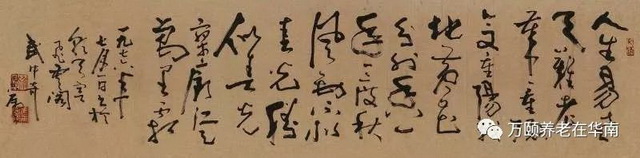 人生易老
天难老
今又重陽
地黄花
分外香一
年一度秋
风劲不似
春光胜
似春光
寥廓江天
萬里霜
一九七六年
七月一日
武中奇
万颐养老在华南